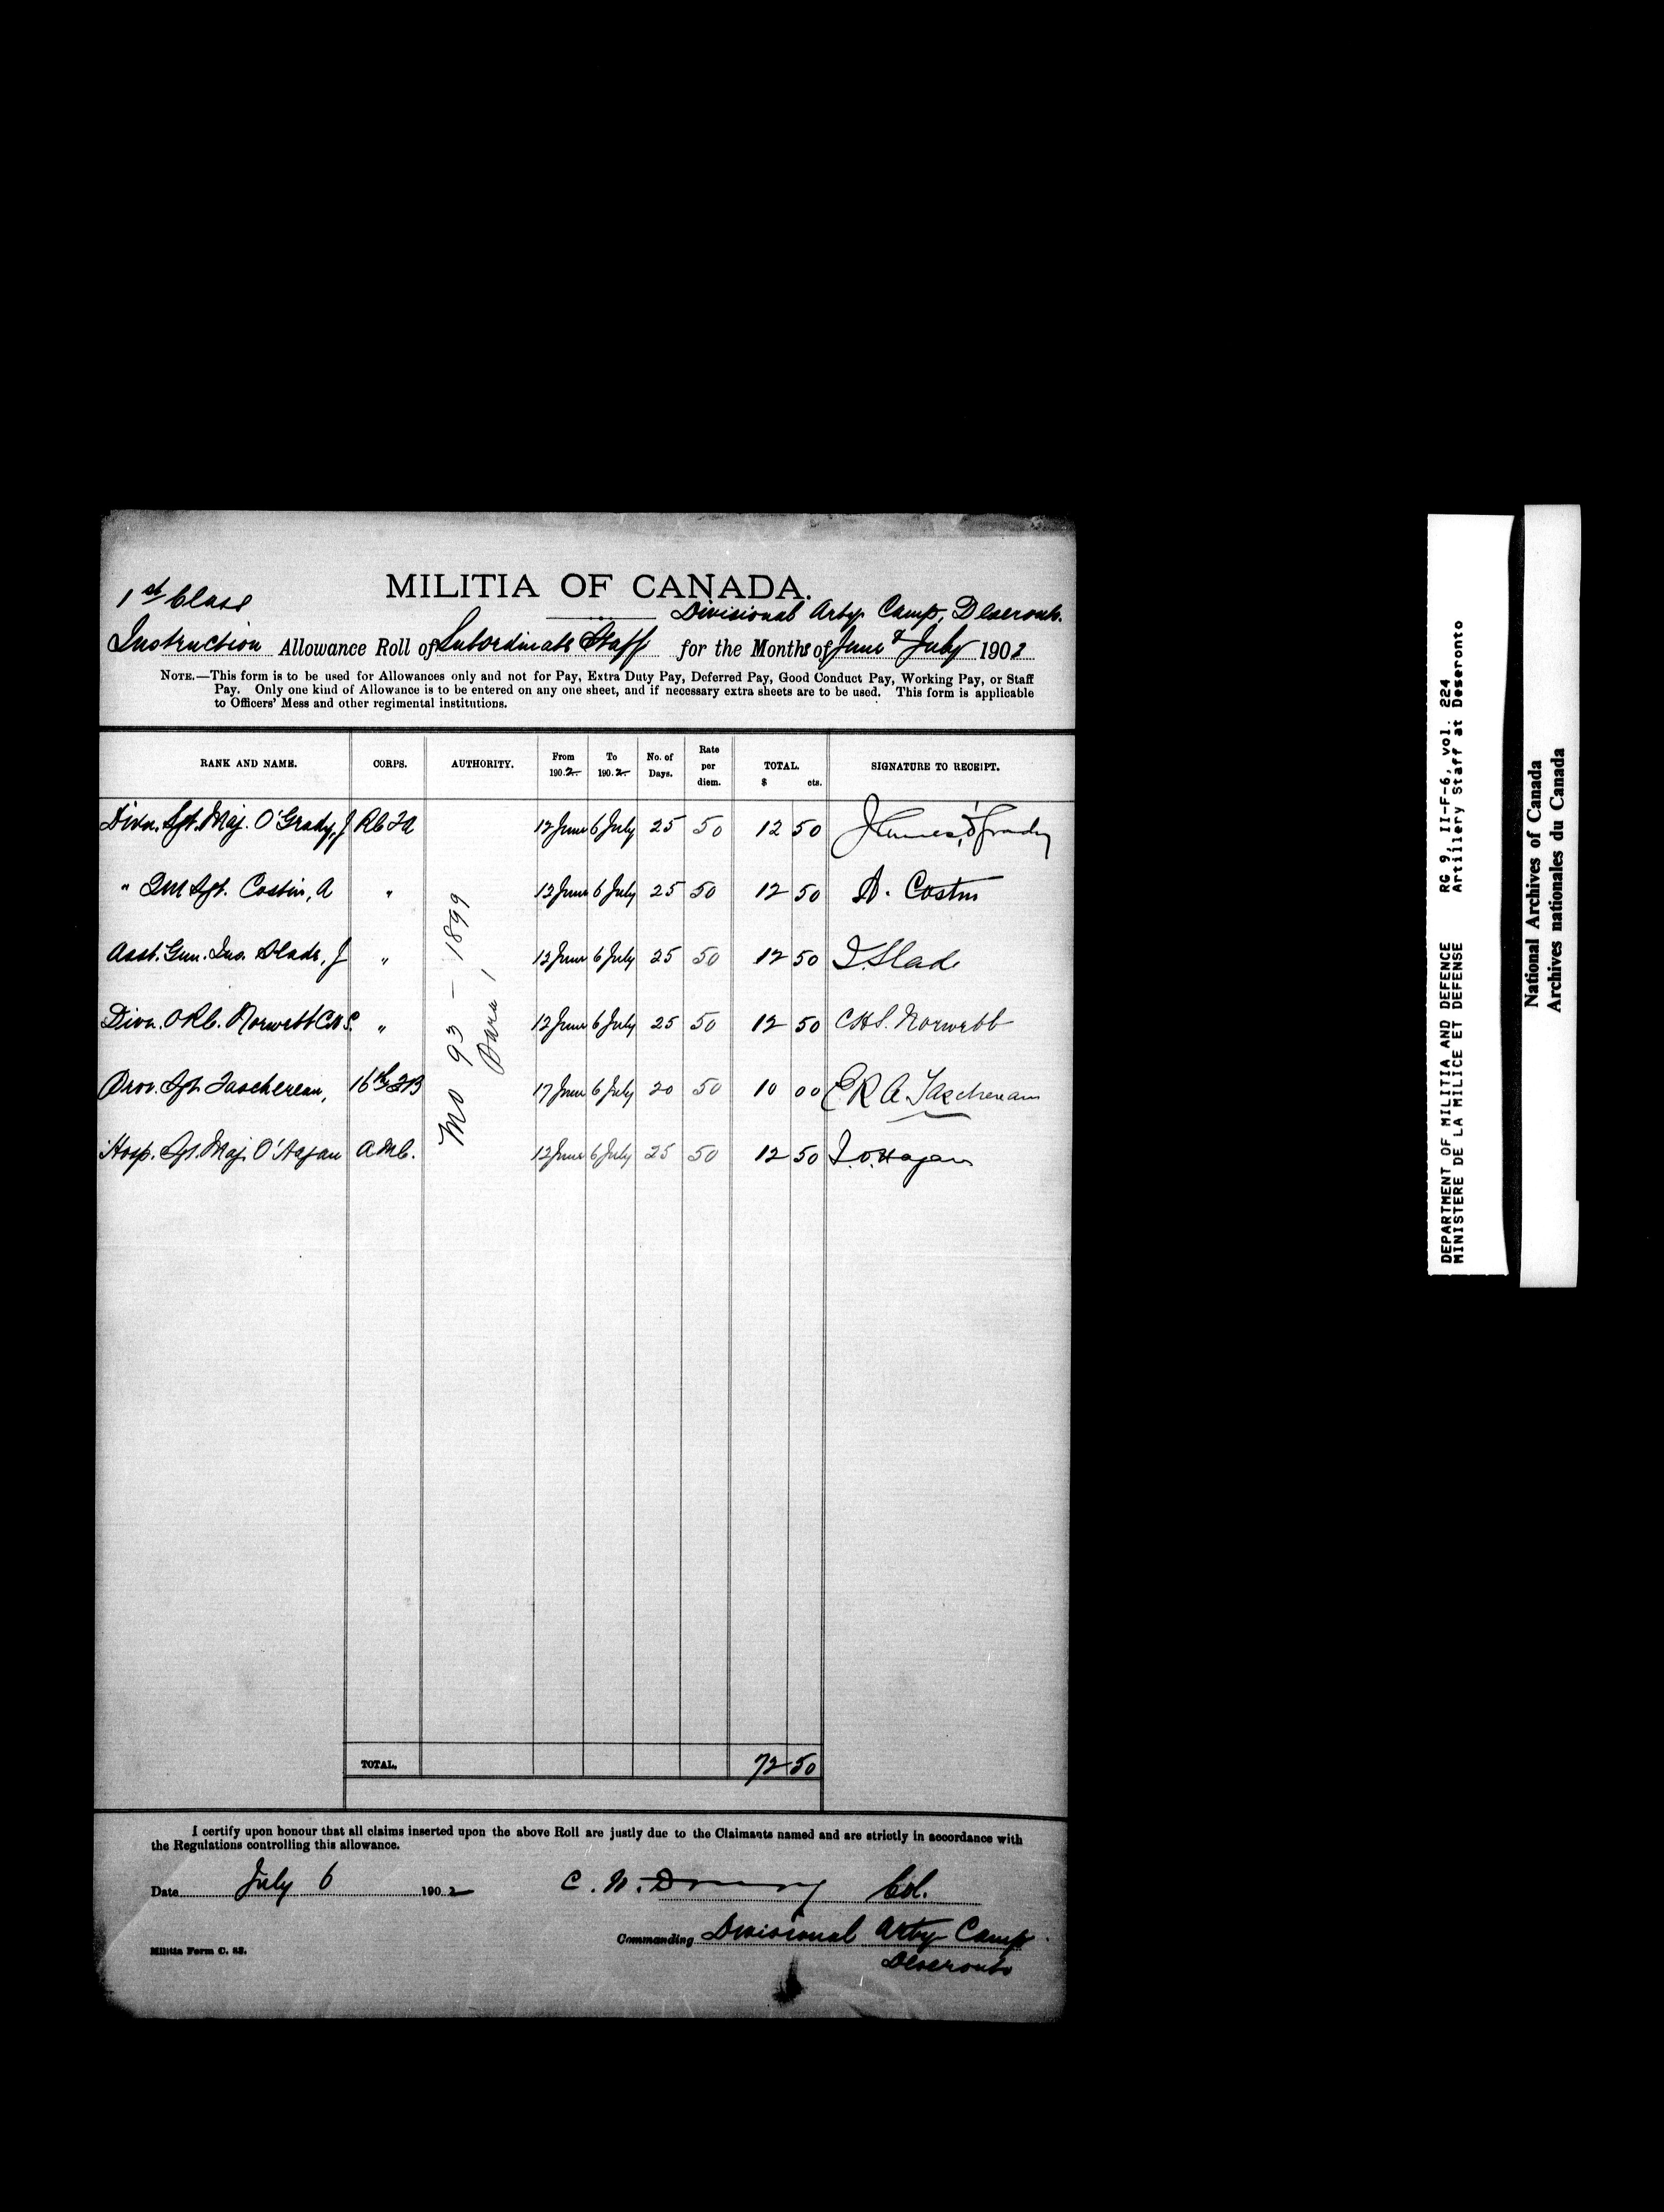 MILITIA OF CANADA.
1st Class
Divisional Arty Camp, Deseronto.
Instruction Allowance Roll of Subordinate Staff for the Months of June & July 1902
NOTE.—This form is to be used for Allowances only and not for Pay, Extra Duty Pay, Deferred Pay, Good Conduct Pay, Working Pay, or Staff
Pay. Only one kind of Allowance is to be entered on any one sheet, and if necessary extra sheets are to be used. This form is applicable
to Officers' Mess and other regimental institutions.
RANK AND NAME. CORPS. AUTHORITY. From 190.2 To 190.2 No. of Days. Rate per diem. TOTAL. $ cts. SIGNATURE TO RECEIPT.
Divn. Sgt. Maj. O'Grady, J RCFA 12 June 6 July 25 50 12 50 James O'Grady
" QM Sgt. Costin, A " 12 June 6 July 25 50 12 50 A. Costin
Asst. Gun. Ins. Slade, J " 12 June 6 July 25 50 12 50 J. Slade
Divn. ORC. Norwebb CHS. " 12 June 6 July 25 50 12 50 CHS. Norwebb
Prov. Sgt Taschereau, 16th FB 17 June 6 July 20 50 10 00 E R A Taschereau
Hosp. Sgt. Maj. O'Hagan AMC. 12 June 6 July 25 50 12 50 J. O'Hagan
MO 93 – 1899
Para 1
TOTAL. 72 50
I certify upon honour that all claims inserted upon the above Roll are justly due to the Claimants named and are strictly in accordance with
the Regulations controlling this allowance.
Date July 6 190.2 C. W. Drury Col.
Commanding Divisional Arty Camp
Deseronto
Militia Form C. 53.
DEPARTMENT OF MILITIA AND DEFENCE RG 9, II-F-6, vol. 224
MINISTERE DE LA MILICE ET DEFENSE Artillery Staff at Deseronto
National Archives of Canada
Archives nationales du Canada